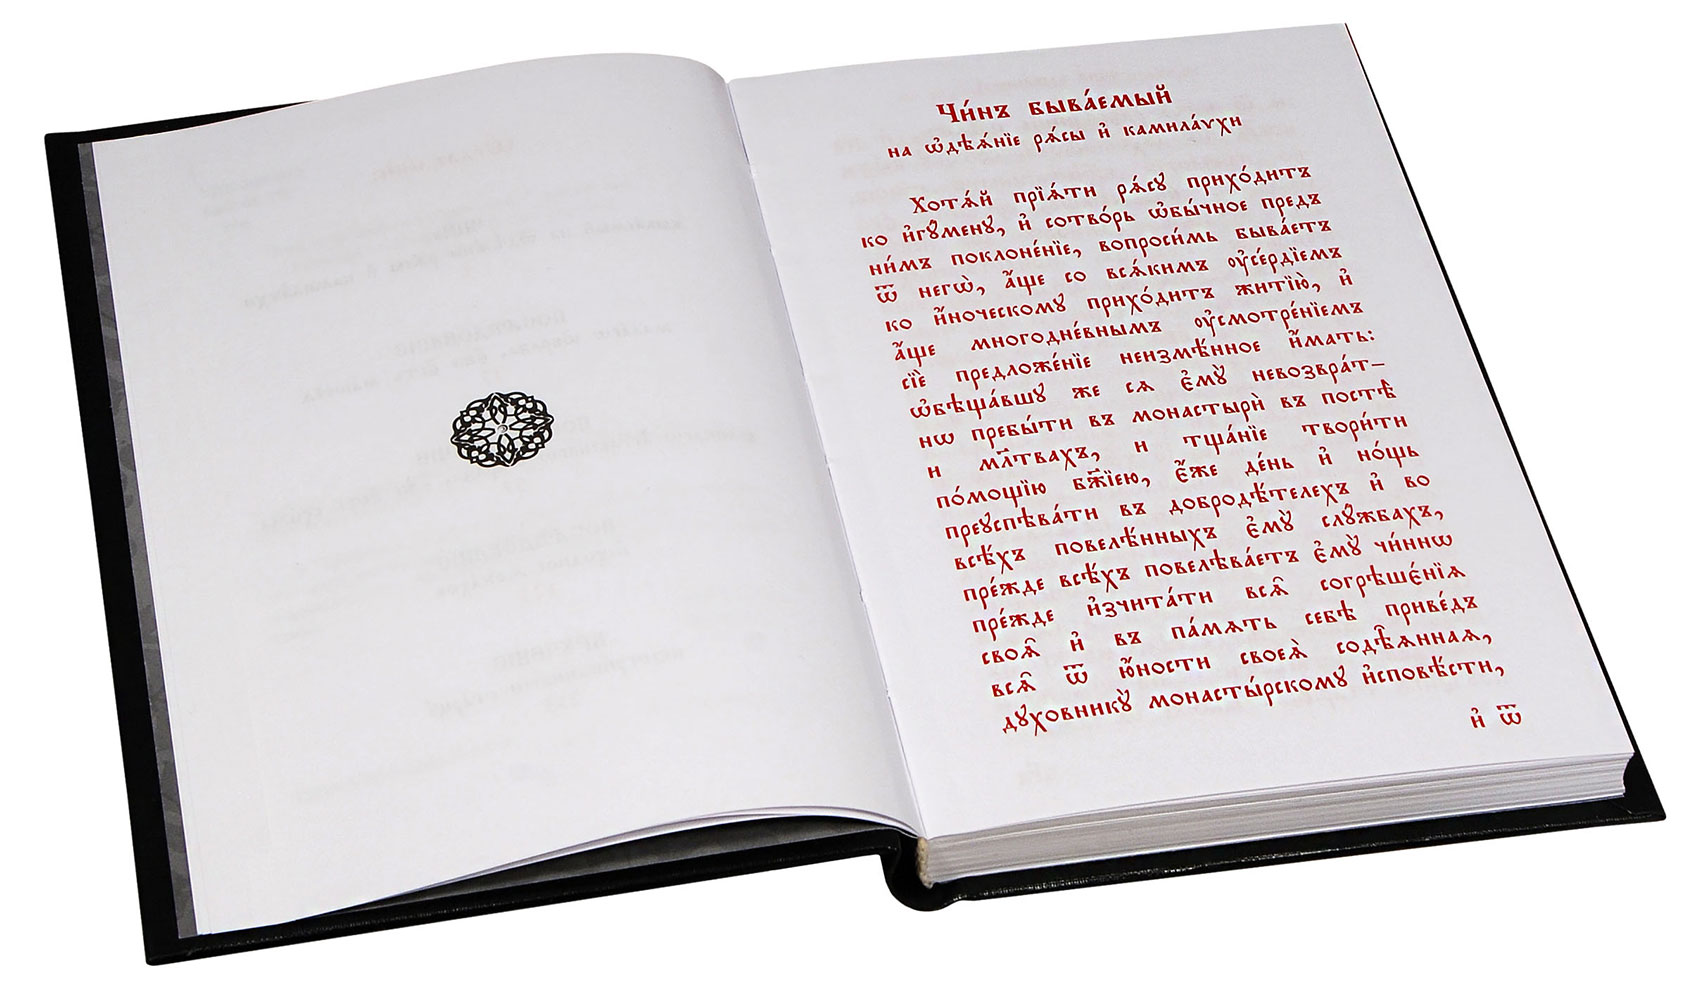 Чи́нъ быва́емый
на ѡ҆дѣѧ́нїе рѧ́сы и҆ камила́ѵхи
Хотѧ́й прїѧ́ти рѧ́су прихо́дитъ
ко и҆гꙋ́мену, и҆ сотво́рь ѡ҆бы́чное предъ
ни́мъ поклоне́нїе, вопроси́мь быва́етъ
ѿ негѡ̀, а҆́ще со всѧ́кимъ ᲂу҆се́рдїемъ
ко и҆́ноческому прихо́дитъ житїю̀, и҆
а҆́ще многодне́внымъ ᲂу҆смотре́нїемъ
сїѐ предложе́нїе неизмѣ́нное и҆́мать:
ѡ҆бѣща́вшу же сѧ є҆мꙋ̀ невозвра́т-
нѡ пребы́ти въ монастырѝ въ постѣ̀
и мл҃твахъ, и тща́нїе твори́ти
по́мощїю бж҃їею, є҆́же де́нь и҆ но́щь
преуспѣва́ти въ добродѣ́телехъ и҆ во
всѣ́хъ повелѣ́нныхъ є҆мꙋ̀ слꙋ́жбахъ,
пре́жде всѣ́хъ повелѣва́етъ є҆мꙋ̀ чи́ннѡ
пре́жде и҆зчита́ти всѧ̑ согрѣше́нїѧ
своѧ̑ и҆ въ па́мѧть себѣ̀ приве́дъ
всѧ̑ ѿ ю҆́ности своеѧ̀ содѣ̑ѧннаѧ,
дꙋхо́вникꙋ монасты́рскому и҆сповѣ́сти,
и҆ ѿ